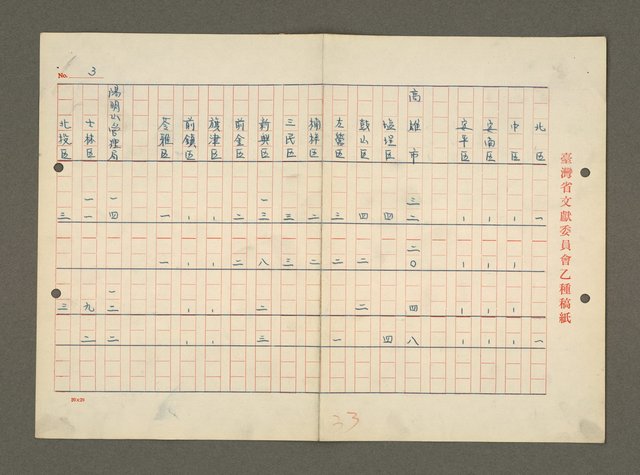 臺灣省文獻委員會乙種稿紙
No. 3
北区 一 一
中区 - - - -
安南区 - - - -
安平区 - - - -
高雄市 三二 二〇 四 八
塩埕区 四 四
鼓山区 四 二 二
左營区 三 二 一
楠梓区 二 二
三民区 三 三
新興区 一三 八 二 三
前金区 二 二
旗津区 - - - -
前鎮区 - - - -
苓雅区 一 一
陽明山管理局 一四 一二 二
士林区 一一 九 二
北投区 三 三
20×20
33